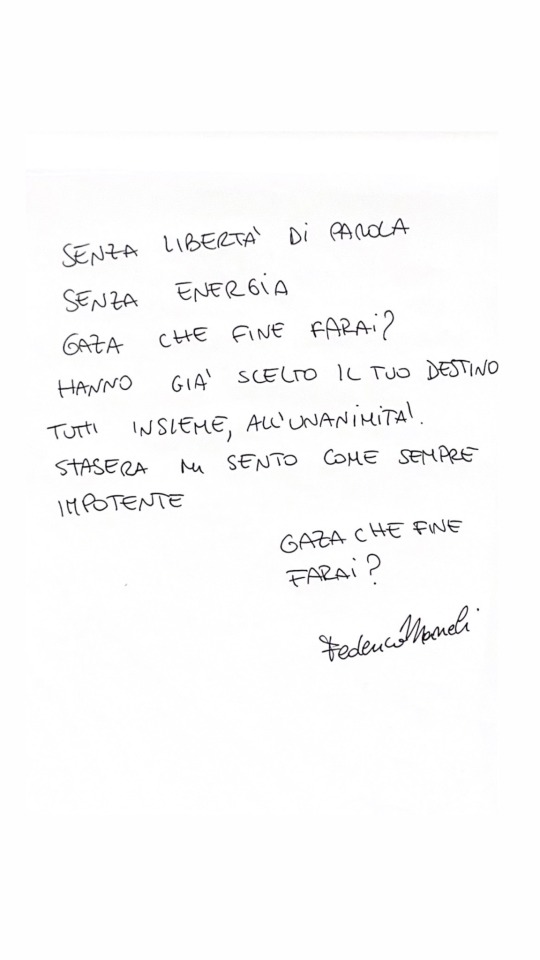 SENZA LIBERTA' Di PAROLA
SENZA ENERGiA
GAZA CHE FINE FARAi?
HANNO GIA' SCELTO IL TUO DESTINO
TUTTI INSIEME, ALL'UNANIMITA'.
STASERA MI SENTO COME SEMPRE
IMPOTENTE
GAZA CHE FINE
FARAi?
Federico